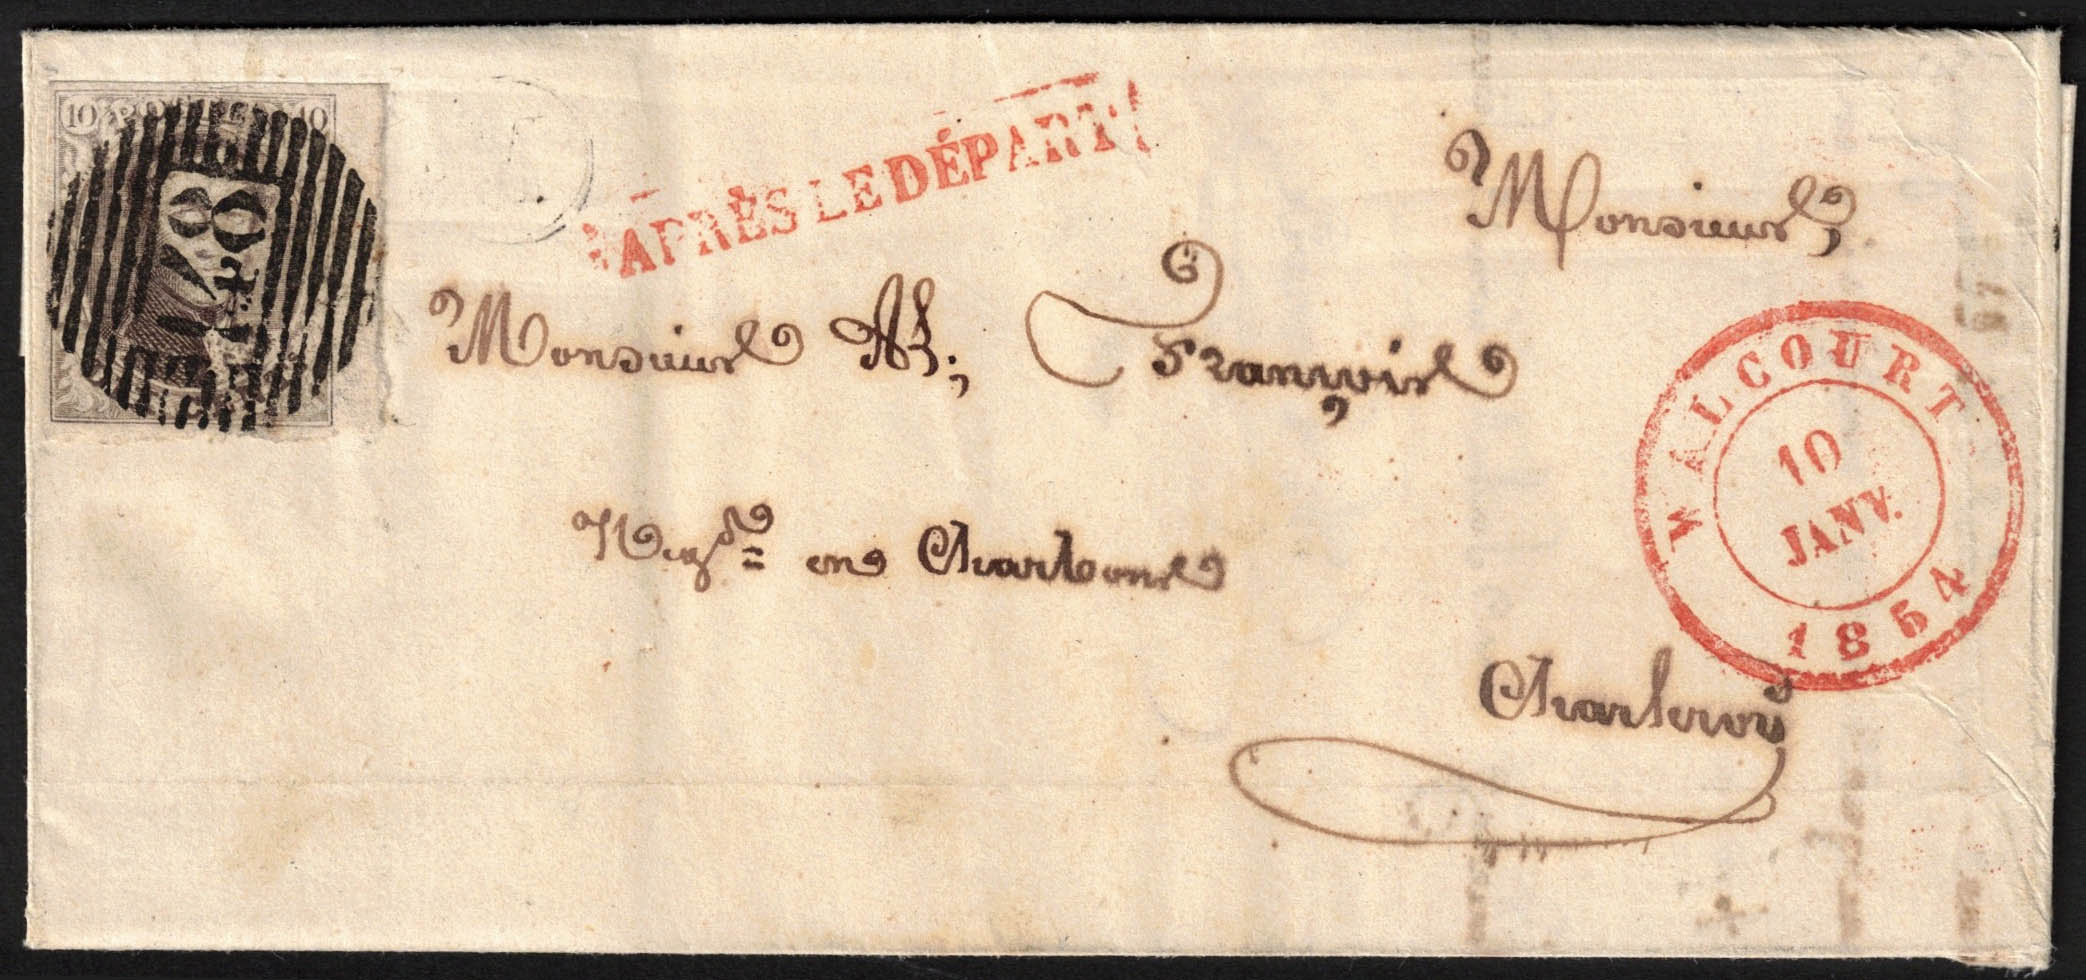 10 POSTES 10
APRÈS LE DÉPART
Monsieur
Monsieur Af. François
Negt en Charbons
Charleroy
WALCOURT
10
JANV.
1854